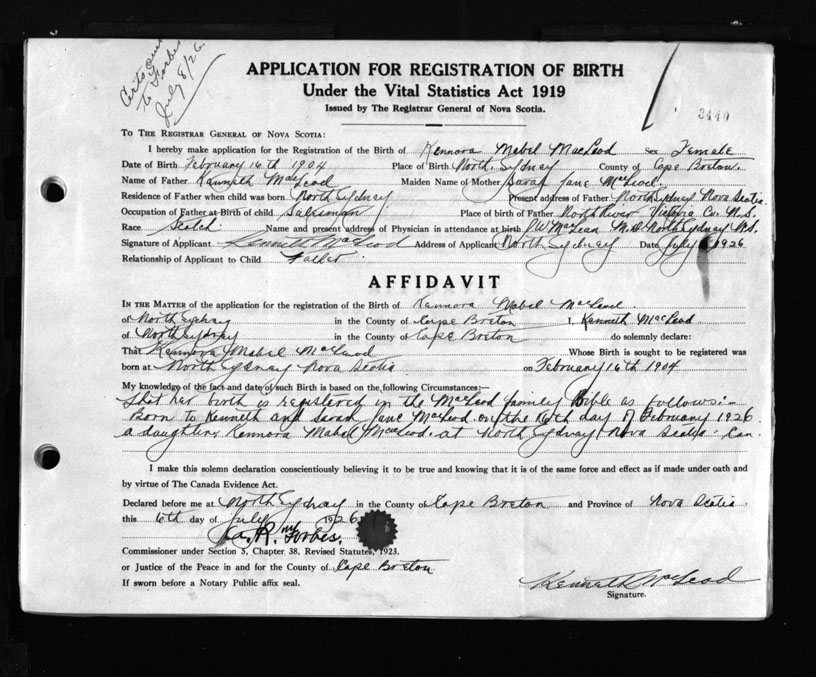 Certs sent
to Forbes
July 8/26.
APPLICATION FOR REGISTRATION OF BIRTH
Under the Vital Statistics Act 1919
Issued by The Registrar General of Nova Scotia.
3440
TO THE REGISTRAR GENERAL OF NOVA SCOTIA:
I hereby make application for the Registration of the Birth of Kennora Mabel MacLeod Sex Female
Date of Birth February 16th 1904 Place of Birth North Sydney County of Cape Breton.
Name of Father Kenneth MacLeod Maiden Name of Mother Sarah Jane McLeod.
Residence of Father when child was born North Sydney Present address of Father North Sydney Nova Scotia.
Occupation of Father at Birth of child Salesman Place of birth of Father North River Victoria Co. N.S.
Race Scotch Name and present address of Physician in attendance at birth J W MacLean M.D North Sydney N.S.
Signature of Applicant Kenneth McLeod Address of Applicant North Sydney Date July 6 1926
Relationship of Applicant to Child Father.
AFFIDAVIT
IN THE MATTER of the application for the registration of the Birth of Kennora Mabel MacLeod.
of North Sydney in the County of Cape Breton I, Kenneth MacLeod
of North Sydney in the County of Cape Breton do solemnly declare:
That Kennora Mabel McLeod Whose Birth is sought to be registered was
born at North Sydney Nova Scotia on February 16th 1904
My knowledge of the fact and date of such Birth is based on the following Circumstances:—
That her birth is registered in the McLeod family Bible as follows:-
Born to Kenneth and Sarah Jane McLeod. on the 16th day of February 1926
a daughter, Kennora Mabel MacLeod. at North Sydney Nova Scotia. Can.
I make this solemn declaration conscientiously believing it to be true and knowing that it is of the same force and effect as if made under oath and
by virtue of The Canada Evidence Act.
Declared before me at North Sydney in the County of Cape Breton and Province of Nova Scotia
this 6th day of July 1926
R. Forbes.
Commissioner under Section 5, Chapter 38, Revised Statutes, 1923.
or Justice of the Peace in and for the County of Cape Breton.
If sworn before a Notary Public affix seal.
Kenneth McLeod
Signature.